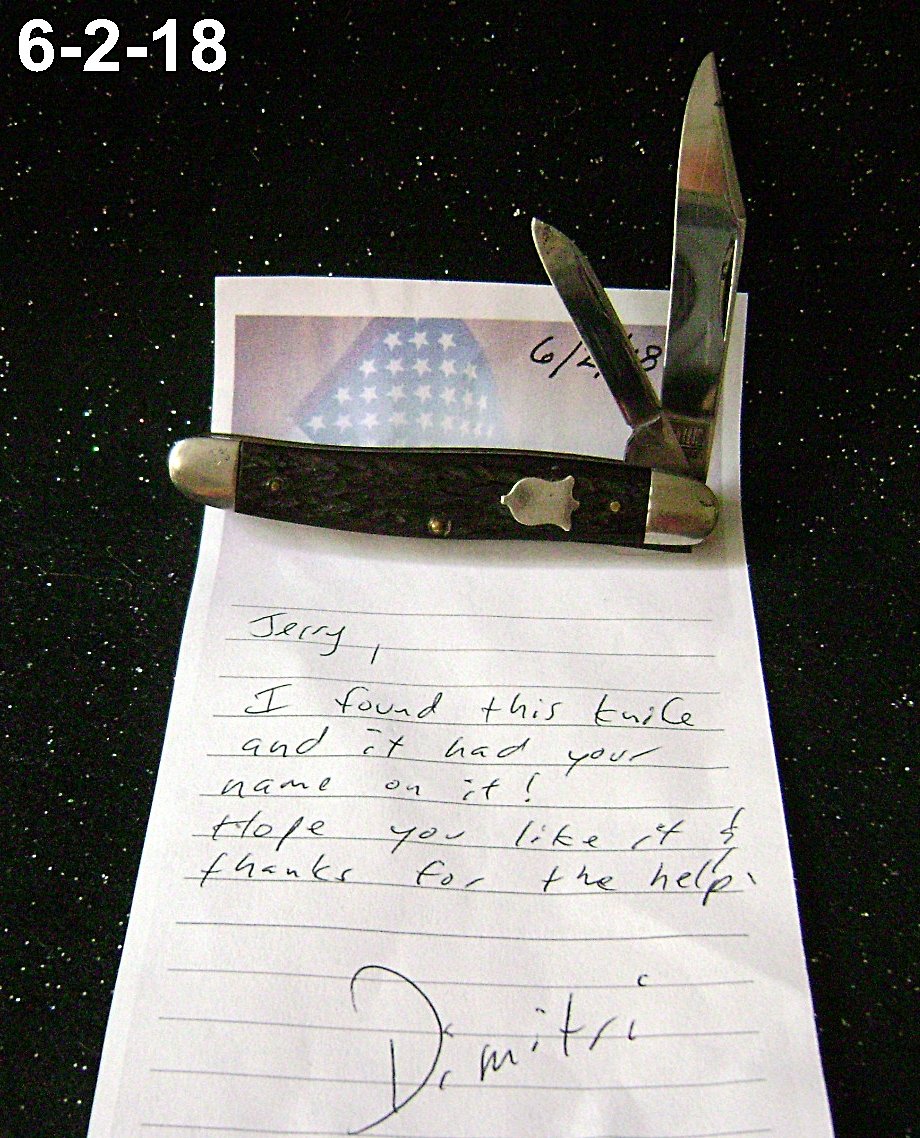 6-2-18
Jerry,
I found this knife
and it had your
name on it!
Hope you like it &
thanks for the help.
Dimitri